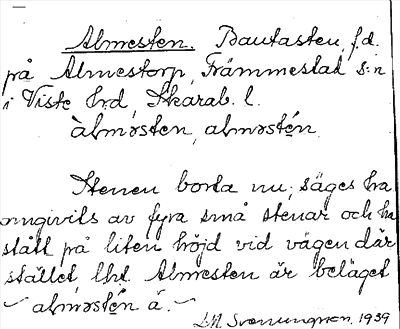 Almesten. Bautasten, f.d.
på Almestorp, Främmestad s:n
i Viste hrd, Skarab. l.
àlməsten, alməstén.
Stenen borta nu; säges ha
omgivits av fyra små stenar och ha
stått på liten höjd vid vägen där
stället lht. Almesten är beläget
- alməstén ä. -
1939